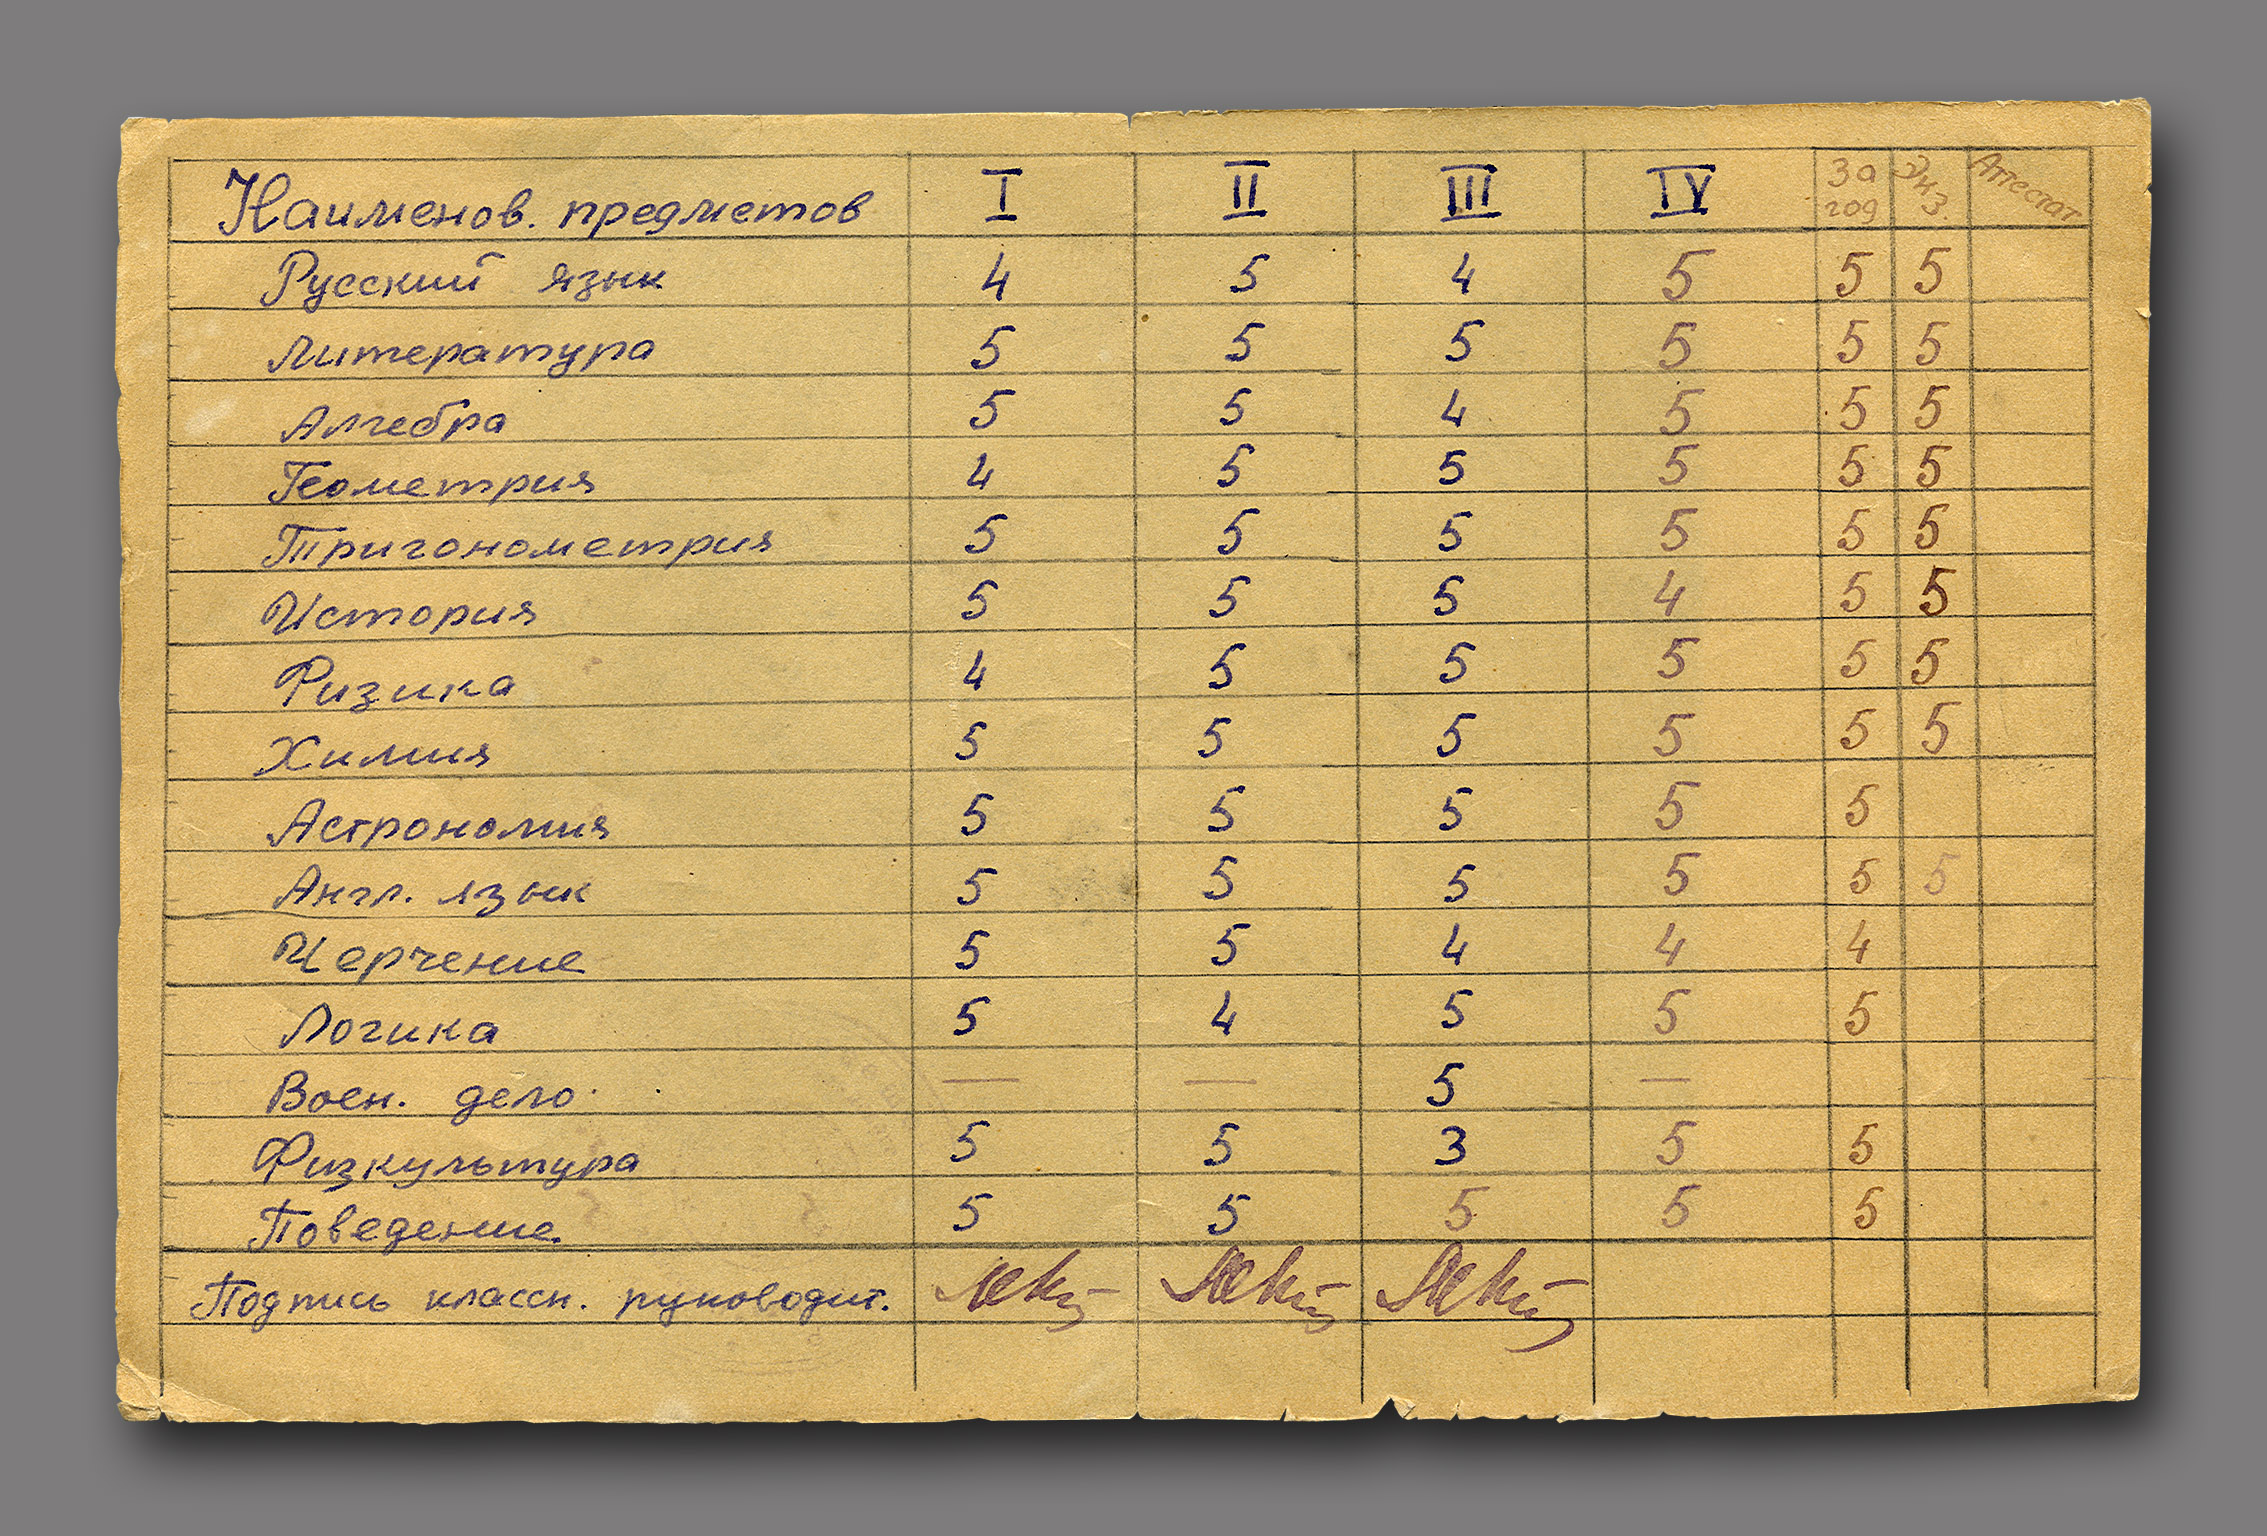 Наименов. предметов I II III IV За год Экз. Аттестат
Русский язык 4 5 4 5 5 5
Литература 5 5 5 5 5 5
Алгебра 5 5 4 5 5 5
Геометрия 4 5 5 5 5 5
Тригонометрия 5 5 5 5 5 5
История 5 5 5 4 5 5
Физика 4 5 5 5 5 5
Химия 5 5 5 5 5 5
Астрономия 5 5 5 5 5
Англ. язык 5 5 5 5 5 5
Черчение 5 5 4 4 4
Логика 5 4 5 5 5
Воен. дело — — 5 —
Физкультура 5 5 3 5 5
Поведение 5 5 5 5 5
Подпись классн. руководит.